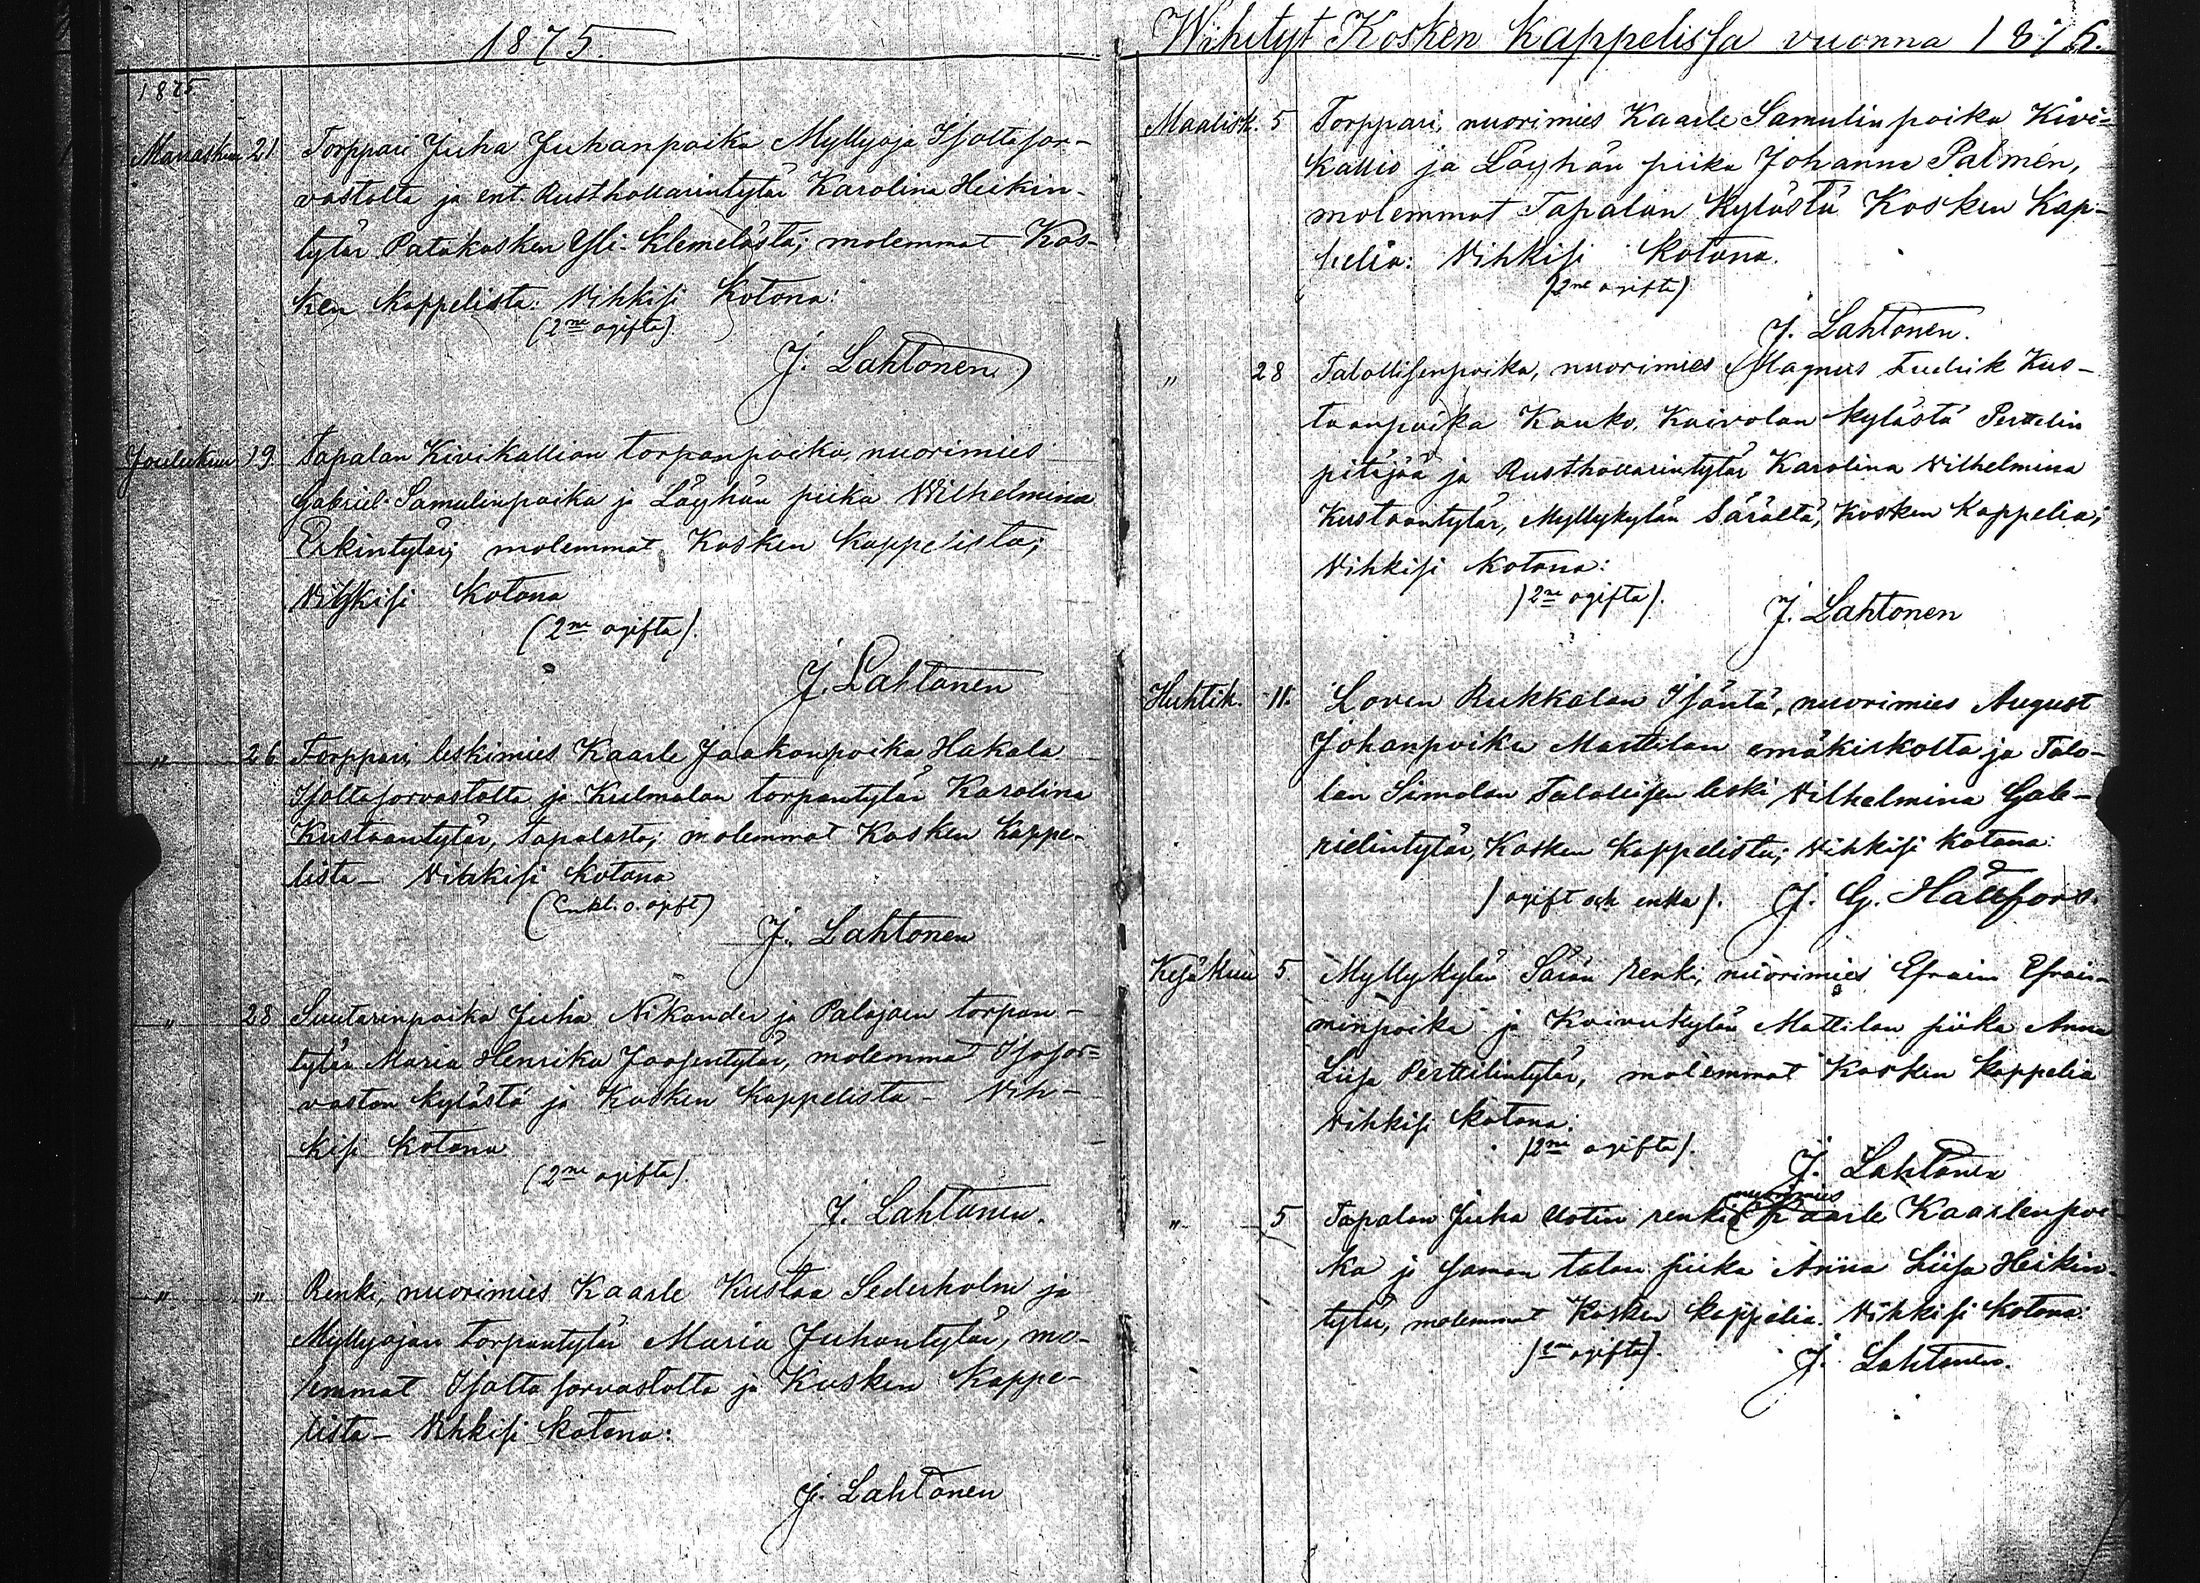 1875.
1875
Marraskuu 21 Torppari Juha Juhanpoika Myllyoja Isoltasor-
vastolta ja ent. Rusthollarintytär Karolina Heikin-
tytär Patakosken Yli-Klemelästä; molemmat Kos-
ken Kappelista: Vihkisi Kotona:
(2ne ogifta).
J. Lahtonen
Joulukuu 19. Tapalan Kivikallion torpanpoika, nuorimies
Gabriel Samulinpoika ja Löyhän piika Wilhelmina
Erkintytär; molemmat Kosken Kappelista;
Vihkisi Kotona
(2ne ogifta).
J. Lahtonen
" 26 Torppari, leskimies Kaarle Jaakonpoika Hakala
Isoltasorvastolta ja Kulmalan torpantytär Karolina
Kustaantytär, Tapalasta; molemmat Kosken Kappe-
lista – Vihkisi Kotona
(Enkl. o. ogift)
J. Lahtonen
" 28 Suutarinpoika Juha Nikander ja Palojoen torpan-
tytär Maria Henrika Joosentytär, molemmat Isosor-
vaston kylästä ja Kosken Kappelista – Vih-
kisi Kotona
(2ne ogifta).
J. Lahtonen.
" " Renki, nuorimies Kaarle Kustaa Sederholm ja
Myllyojan torpantytär Maria Juhantytär, mo-
lemmat Isoltasorvastolta ja Kosken Kappe-
lista – Vihkisi Kotona:
J. Lahtonen
Wihityt Kosken Kappelissa vuonna 1876.
Maalisk. 5 Torppari, nuorimies Kaarle Samulinpoika Kivi-
kallio ja Löyhän piika Johanna Palmén,
molemmat Tapalan Kylästä Kosken Kap-
pelia: Vihkisi Kotona.
(2ne ogifta)
J. Lahtonen.
" 28 Talollisenpoika, nuorimies Magnus Fredrik Kus-
taanpoika Kauko, Kaivolan kylästä Perttelin
pitäjää ja Rusthollarintytär Karolina Vilhelmina
Kustaantytär, Myllykylän Särältä, Kosken Kappelia;
Vihkisi Kotona:
(2ne ogifta).
J. Lahtonen
Huhtik. 11. Loven Rukkalan Isäntä, nuorimies August
Johanpoika Marttilan emäkirkolta ja Talo-
lan Simolan Talollisen leski Vilhelmina Gab-
rielintytär, Kosken Kappelista; Vihkisi kotona:
(ogift och enka). J. G. Hällfors.
Kesäkuu 5. Myllykylän Särän renki, nuorimies Efraim Efrai-
minpoika ja Koivukylän Mattilan piika Anna
Liisa Perttilintytär, molemmat Kosken Kappelia
Vihkisi Kotona:
(2ne ogifta).
J. Lahtonen
nuorimies
" 5 Tapalan Juha Uotin renki Kaarle Kaarlenpoi-
ka ja saman talon piika Anna Liisa Heikin-
tytär, molemmat Kosken kappelia. Vihkisi Kotona:
ogifta).
J. Lahtonen.